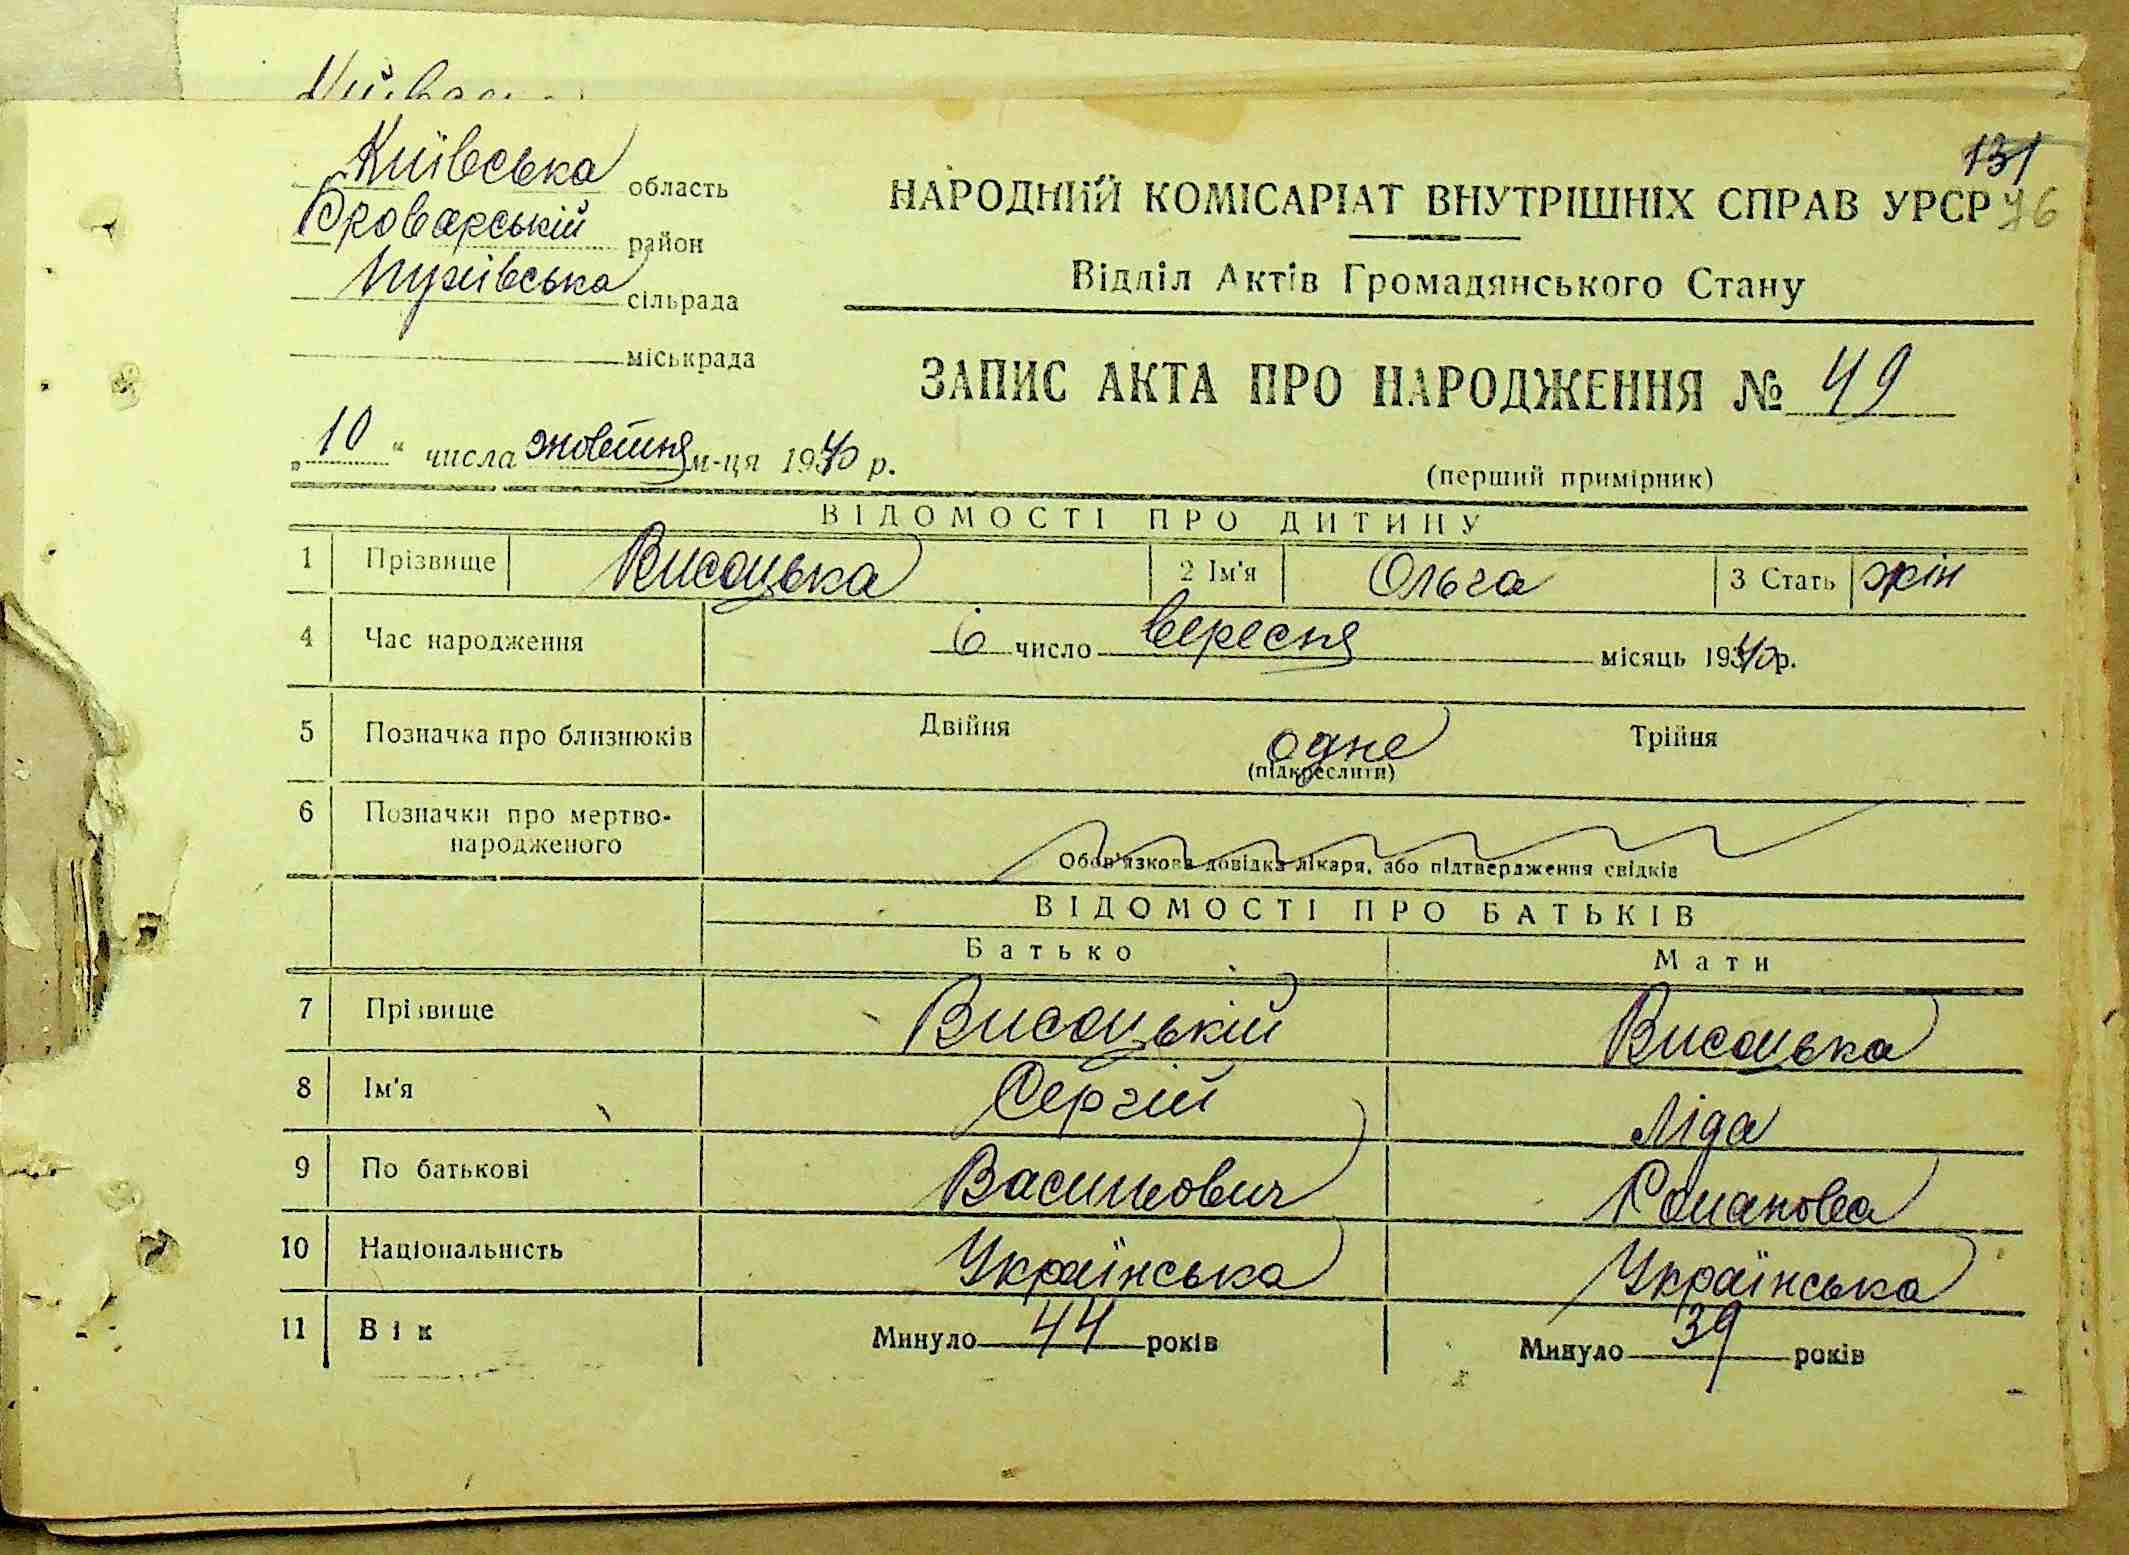 Київська область
Броварській район
Пухівська сільрада
міськрада
131
НАРОДНИЙ КОМІСАРІАТ ВНУТРІШНІХ СПРАВ УРСР 76
Відділ Актів Громадянського Стану
ЗАПИС АКТА ПРО НАРОДЖЕННЯ № 49
„10“ числа жовтня м-ця 1940 р.
(перший примірник)
ВІДОМОСТІ ПРО ДИТИНУ
1 Прізвище Висоцька 2 Ім'я Ольга 3 Стать жін
4 Час народження 6 число вересня місяць 1940 р.
5 Позначка про близнюків Двійня одне Трійня
(підкреслити)
6 Позначки про мертво-
народженого
Обов'язкова довідка лікаря, або підтвердження свідків
ВІДОМОСТІ ПРО БАТЬКІВ
Батько Мати
7 Прізвище Висоцькій Висоцька
8 Ім'я Сергій Ліда
9 По батькові Васильович Романовна
10 Національність Українська Українська
11 Вік Минуло 44 років Минуло 39 років